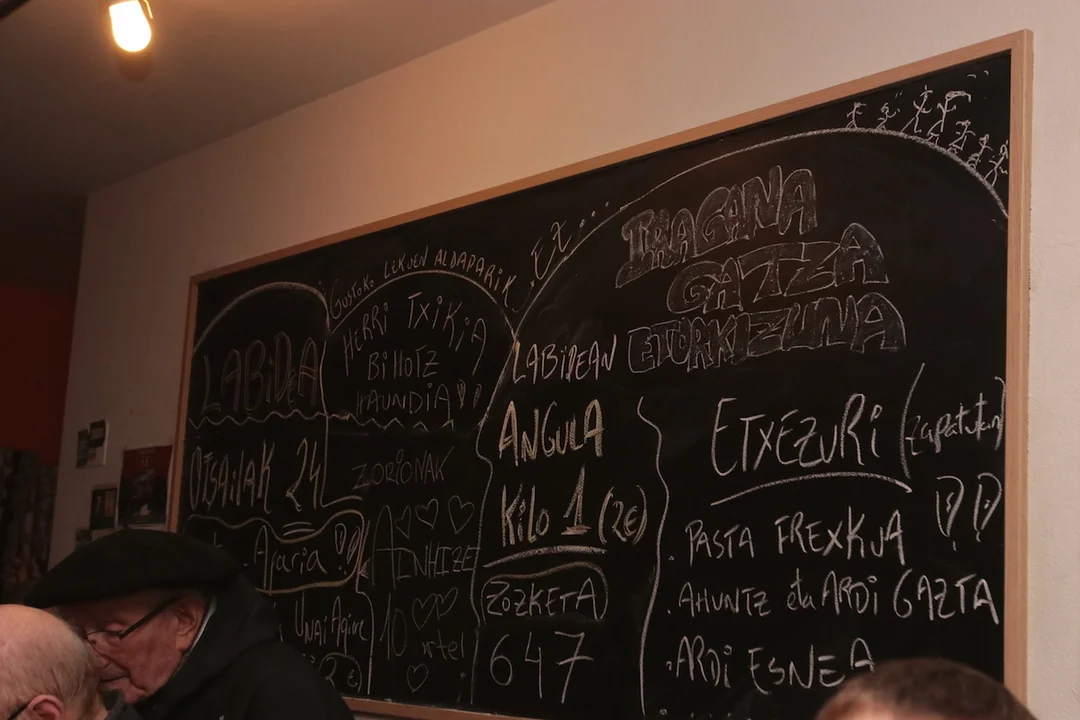 LABIDEA
OTSAILAK 24
Afaria !!
Unai Agirre
GUSTOKO LEKUEN ALDAPARIK EZ...
HERRI TXIKIA
BIHOTZ
HAUNDIA !!
ZORIONAK
AINHIZE
10 urte!
IRAGANA
GATZA
LABIDEAN ETORKIZUNA
ANGULA
Kilo 1 (2€)
ZOZKETA
647
ETXEZURI (zapatutan)
!!
. PASTA FREXKUA
. AHUNTZ eta ARDI GAZTA
. ARDI ESNEA